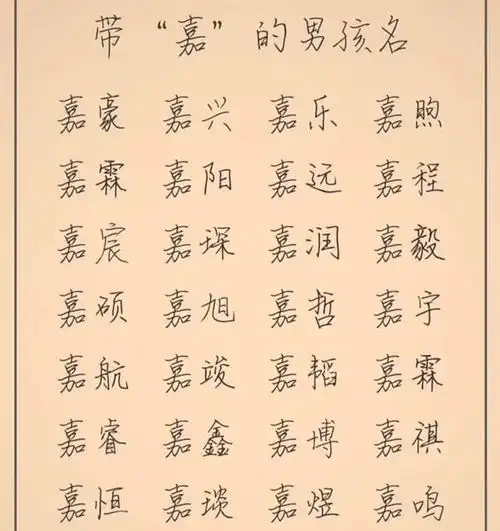 带“嘉”的男孩名
嘉豪 嘉兴 嘉乐 嘉煦
嘉霖 嘉阳 嘉远 嘉程
嘉宸 嘉琛 嘉润 嘉毅
嘉硕 嘉旭 嘉哲 嘉宇
嘉航 嘉竣 嘉韬 嘉霖
嘉睿 嘉鑫 嘉博 嘉祺
嘉恒 嘉琰 嘉煜 嘉鸣